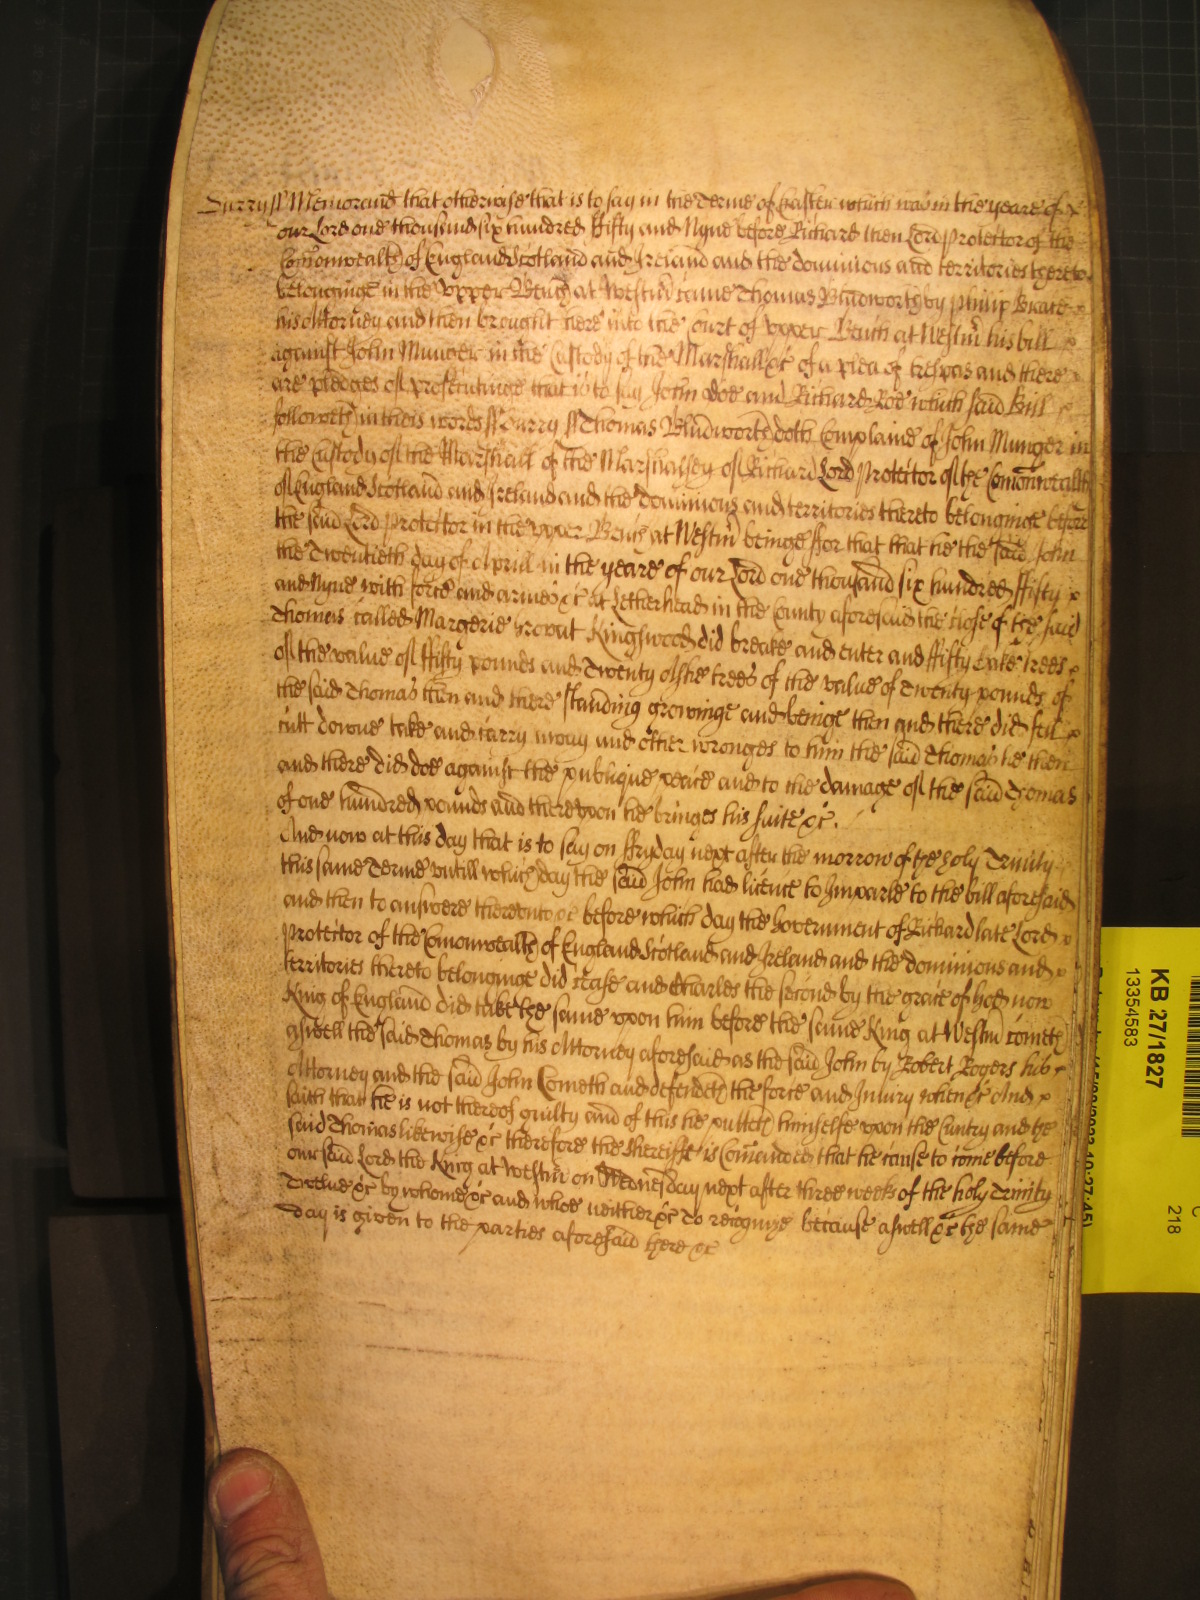 Surry ss Memorand that otherwise that is to say in the Terme of Easter which was in the yeare of
our Lord one thousand six hundred ffifty and Nyne before Richard then Lord Protector of the
Comonwealth of England Scotland and Ireland and the dominions and territories thereto
belonginge in the Upper Bench at Westm came Thomas Bludworth by Philip
his Attorney and then brought here into the Court of Upper Bench at Westm his bill
against John Munger in the Custody of the Marshall &c of a plea of trespas and there
are pledges of prosecutinge that is to say John doe and Richard Roe which said Bill
followeth in theis words ss Surry ss Thomas Bludworth doth Complaine of John Munger in
the Custody of the Marshall of the Marshalsey of Richard Lord Protector of the Comonwealth
of England Scotland and Ireland and the dominions and territories thereto belonginge before
the said Lord Protector in the upper Bench at Westm beinge ffor that that he the said John
the Twentieth day of Aprill in the yeare of our Lord one thousand six hundred ffifty
and Nyne with force and armes &c at Letherhead in the County aforesaid the close of the said
Thomas called Margerie Kingswood did breake and enter and ffifty Oake trees
of the value of ffifty pounds and Twenty Ashe trees of the value of Twenty pounds of
the said Thomas then and there standing growinge and beinge then and there did fell
cutt downe take and carry away and other wronges to him the said Thomas he then
and there did doe against the publique peace and to the damage of the said Thomas
of one hundred pounds and thereupon he bringes his suite &c.
And now at this day that is to say on ffryday next after the morrow of the holy Trinity
this same Terme untill which day the said John had licence to Imparle to the bill aforesaid
and then to answere thereunto &c before which day the Government of Richard late Lord
Protector of the Comonwealth of England Scotland and Ireland and the dominions and
territories thereto belonginge did cease and Charles the second by the grace of God now
King of England did take the same upon him before the same King at Westm cometh
aswell the said Thomas by his Attorney aforesaid as the said John by Robert Rogers his
Attorney and the said John Cometh and defendeth the force and Iniury when &c And
saith that he is not thereof guilty and of this he putteth himselfe upon the Cuntry and the
said Thomas likewise &c therefore the Sheriffe is Comanded that he cause to come before
our said Lord the King at Westm on Wednesday next after three weeks of the holy Trinity
Twelve &c by whome &c and whoe neither &c To recognize because aswell &c the same
day is given to the parties aforesaid here &c
KB 27/1827
13354583
218